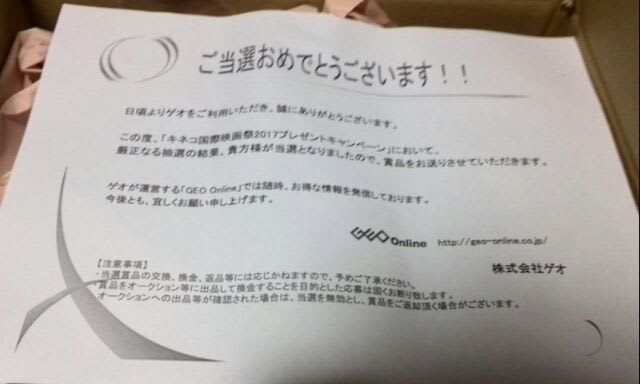 ご当選おめでとうございます!!
日頃よりゲオをご利用いただき、誠にありがとうございます。
この度、「キネコ国際映画祭2017プレゼントキャンペーン」において、
厳正なる抽選の結果、貴方様が当選となりましたので、賞品をお送りさせていただきます。
ゲオが運営する「GEO Online」では随時、お得な情報を発信しております。
今後とも、宜しくお願い申し上げます。
GEO Online http://geo-online.co.jp/
株式会社ゲオ
【注意事項】
・当選賞品の交換、換金、返品等には応じかねますので、予めご了承ください。
・賞品をオークション等に出品して換金することを目的とした応募は固くお断り致します。
オークションへの出品等が確認された場合は、当選を無効とし、賞品をご返却頂く場合がございます。